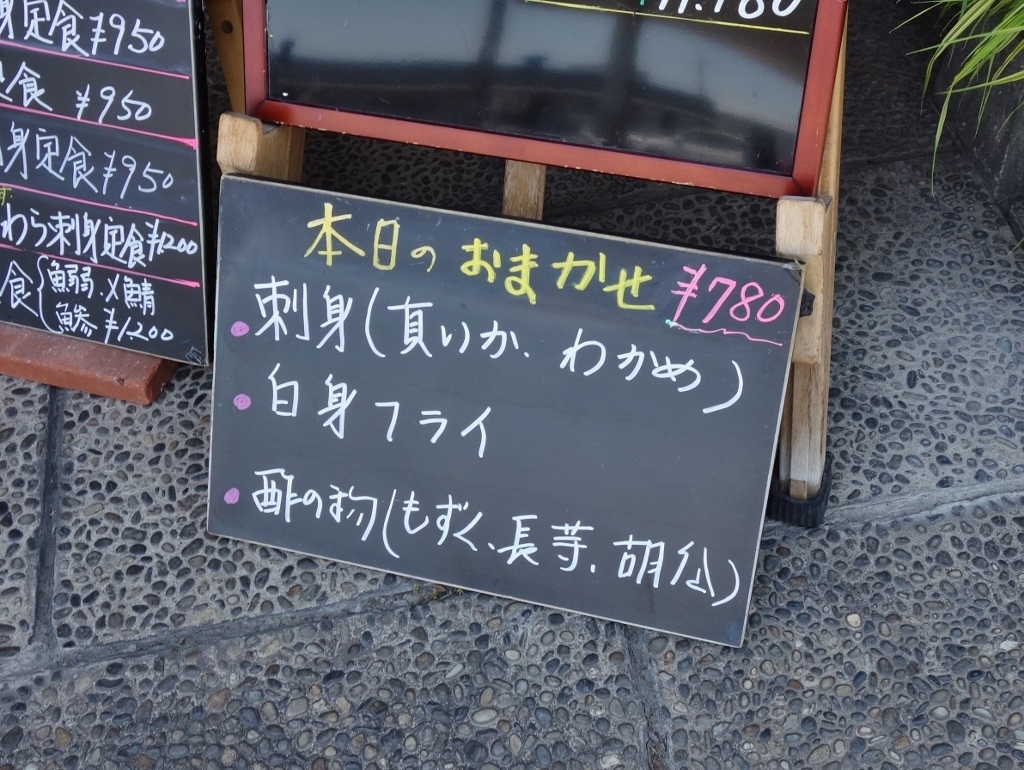 身定食 ¥950
定食 ¥950
身定食 ¥950
わら刺身定食 ¥1200
食 鰯 〆鯖
鯵 ¥1200
¥1.780
本日のおまかせ ¥780
・刺身(真いか、わかめ)
・白身フライ
・酢の物(もずく、長芋、胡瓜)